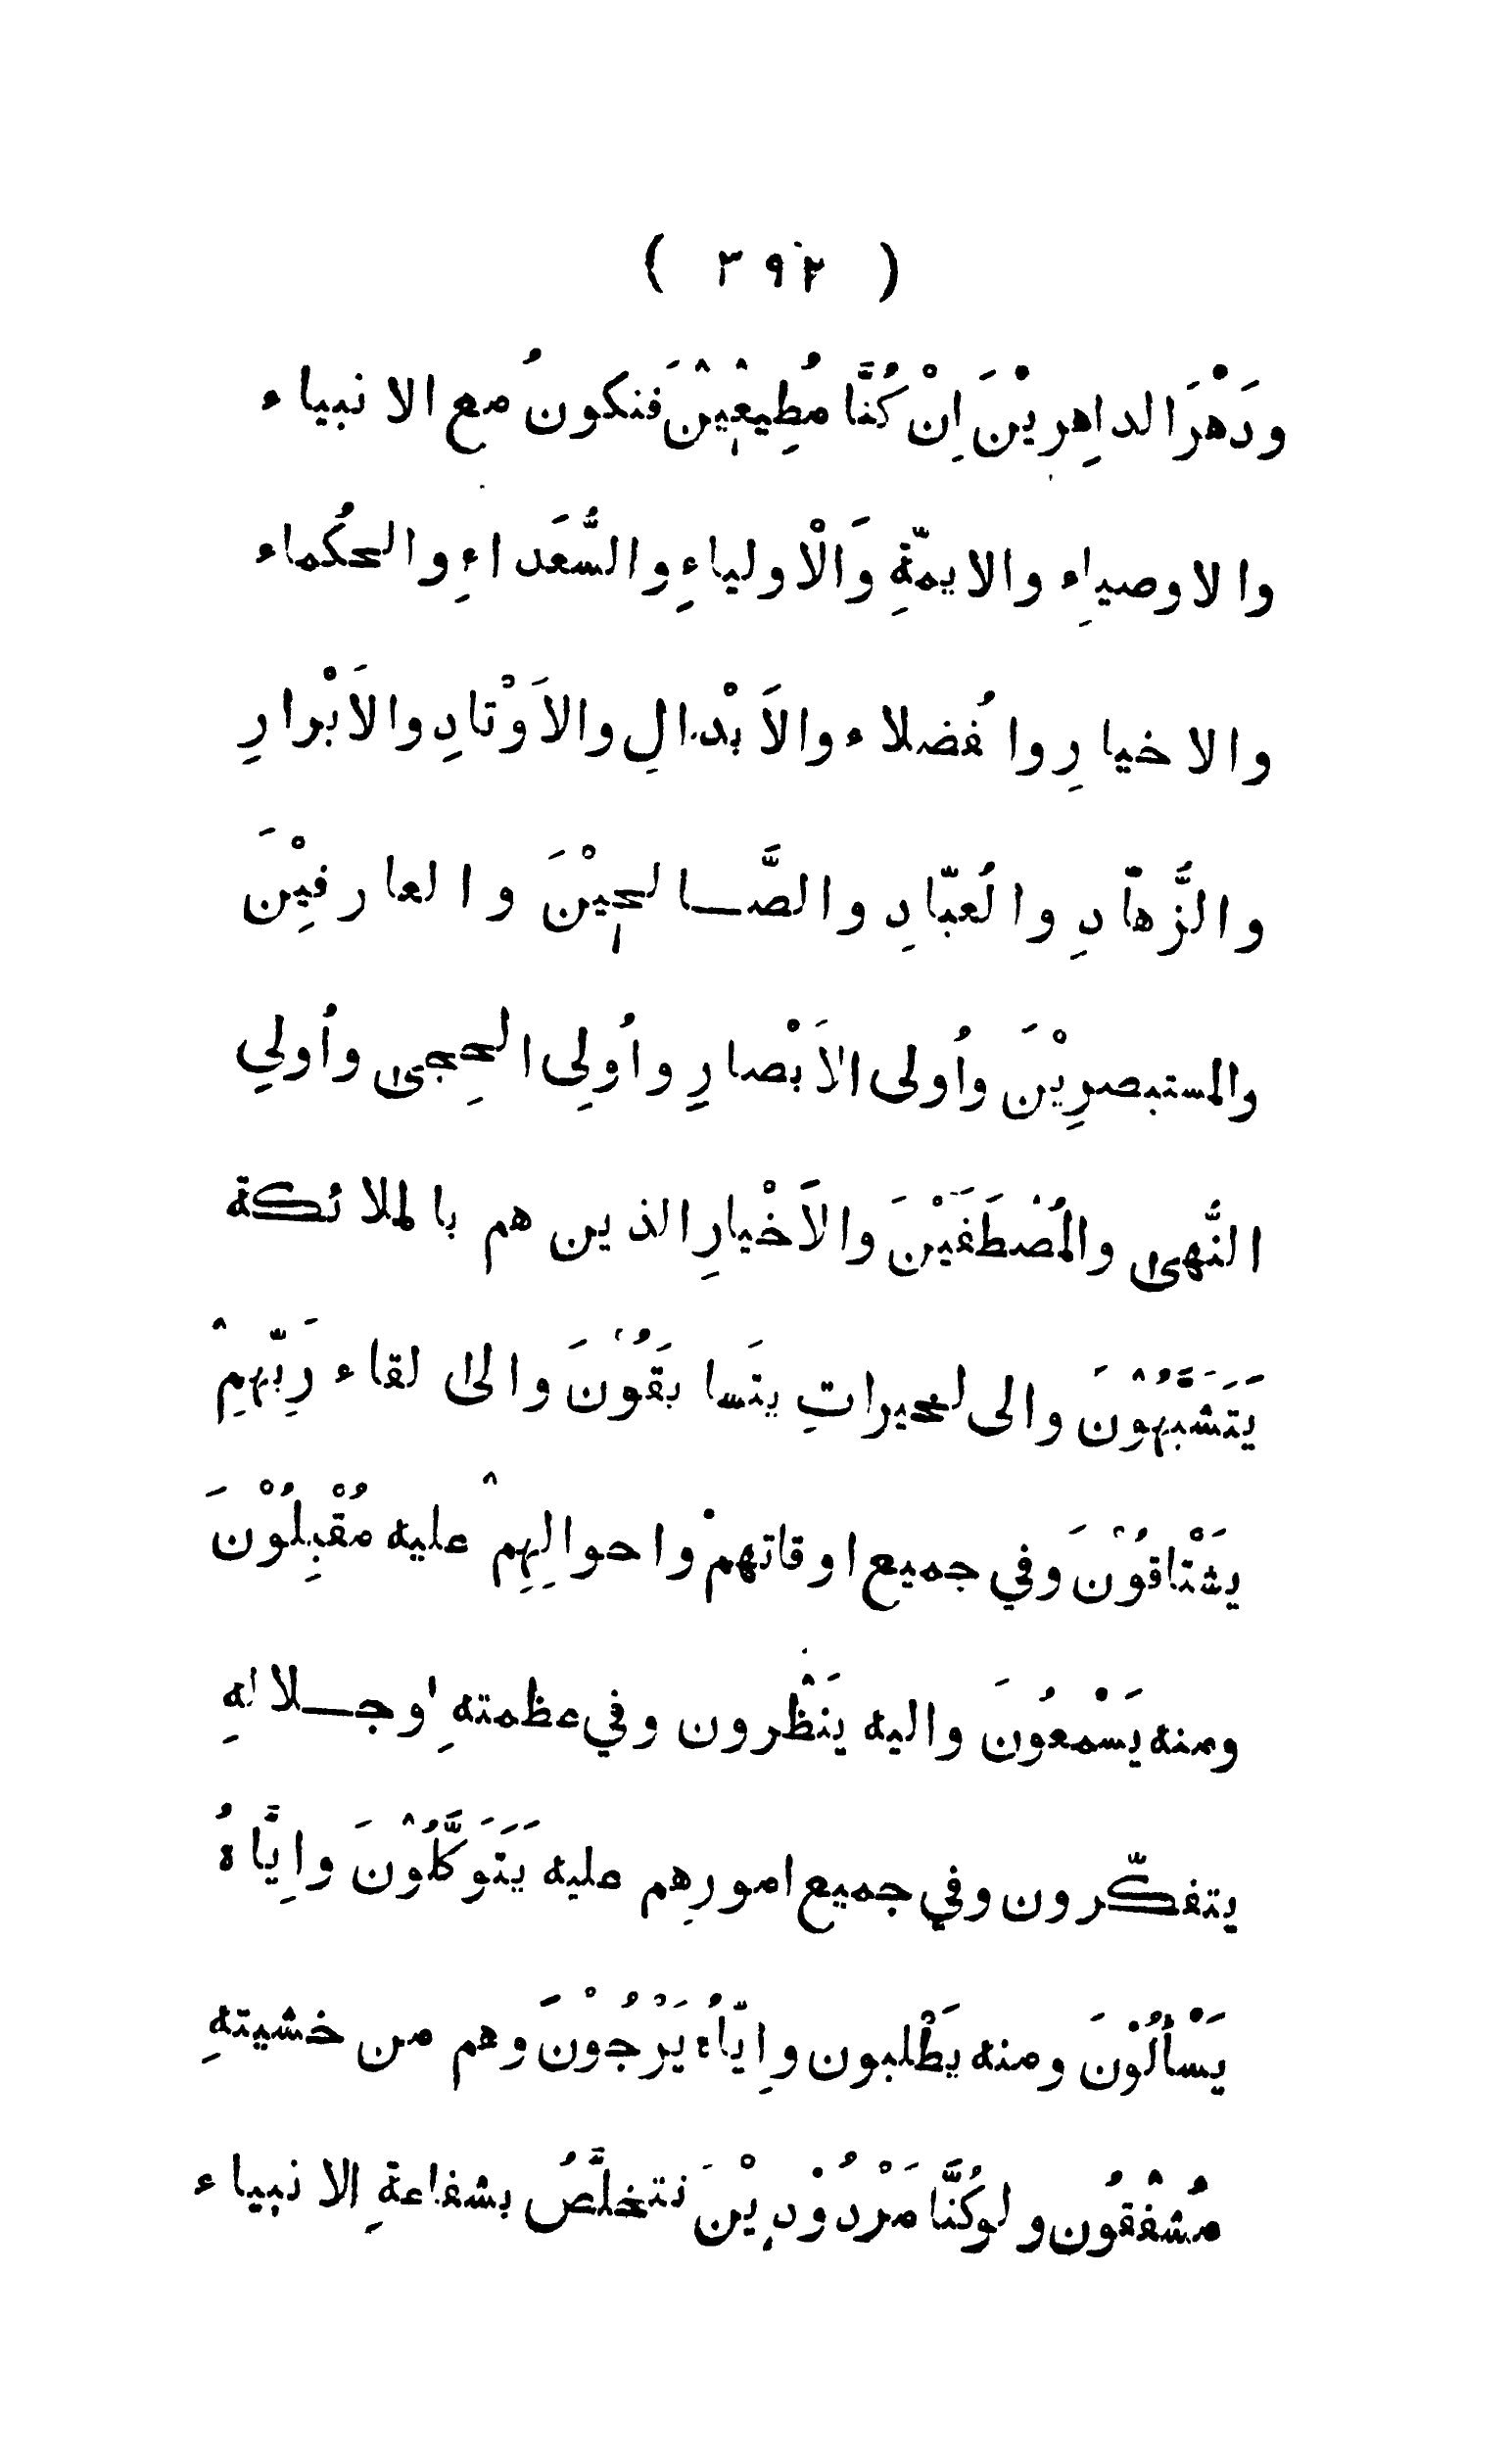 ( ٣٩٢ )
ودَهْرَ الداهِرِيْنَ اِنْ كُنَّا مُطِيعِيْنَ فنكونُ مع الانبياء
والاوصياءِ والايمّةِ وَالْاولياءِ والسُّعَداءِ والحكُماء
والاخيارِ وافُضلاء والاَبْدالِ والاَوْتادِ والاَبْرارِ
والزُّهّادِ والعُبّادِ والصَّالحِيْنَ والعارفِيْنَ
والمستبصرِيْنَ وأُولى الاَبْصارِ واُولِى الحِجىٰ واُولي
النُّهىٰ والمُصْطَفَيْنَ والاَخْيارِ الذين هم بالملائكة
يَتَشَبَّهُوْنَ والى لخيراتِ يتَسابقَوُنَ والىٰ لقاء رَبِّهِمْ
يَشْتاقوُنَ وفي جميع اوقاتهمْ واحوالِهِمْ عليه مُقْبِلُوْنَ
ومنه يَسْمعُونَ واليه يَنْظُرون وفي عظمتهِ وجلالهِ
يتفكّرون وفي جميع امورِهم عليه يَتَوَكَّلُوْنَ واِيَّاهُ
يَسْألُوْنَ ومنه يَطْلبون واِيّاهُ يَرْجُوْنَ وهم من خشيتهِ
مُشْفقُون ولوكُنَّا مَرْدُوْدِيْنَ نتخلَّصُ بشفاعةِ الانبياء